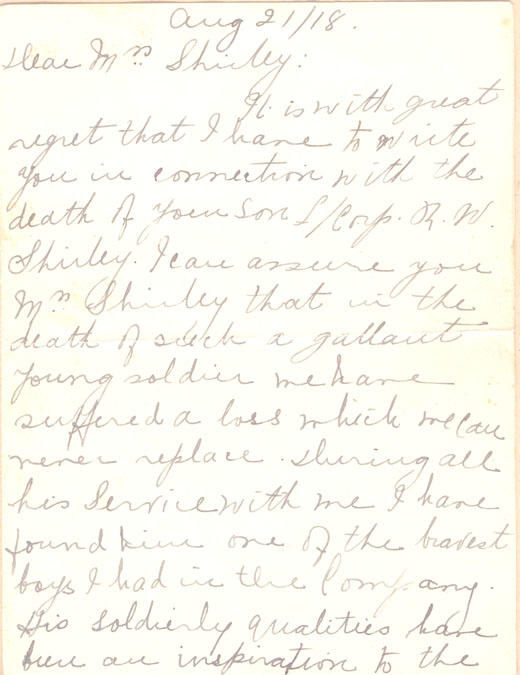 Aug 21/18.
Dear Mrs. Shirley:
It is with great
regret that I have to write
you in connection with the
death of your son L/Corp. R. W.
Shirley. I can assure you
Mrs Shirley that in the
death of such a gallant
young soldier we have
suffered a loss which we can
never replace. During all
his service with me I have
found him one of the bravest
boys I had in the Company.
His soldierly qualities have
been an inspiration to the